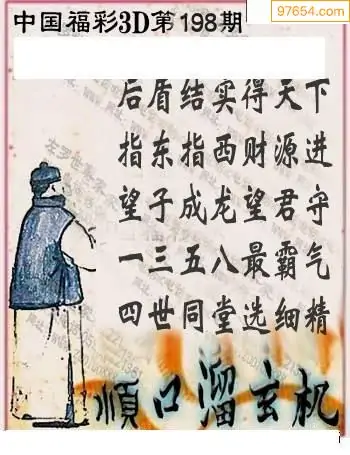 97654.com
中国福彩3D第198期
后盾结实得天下
指东指西财源进
望子成龙望君守
一三五八最霸气
四世同堂选细精
順口溜玄机